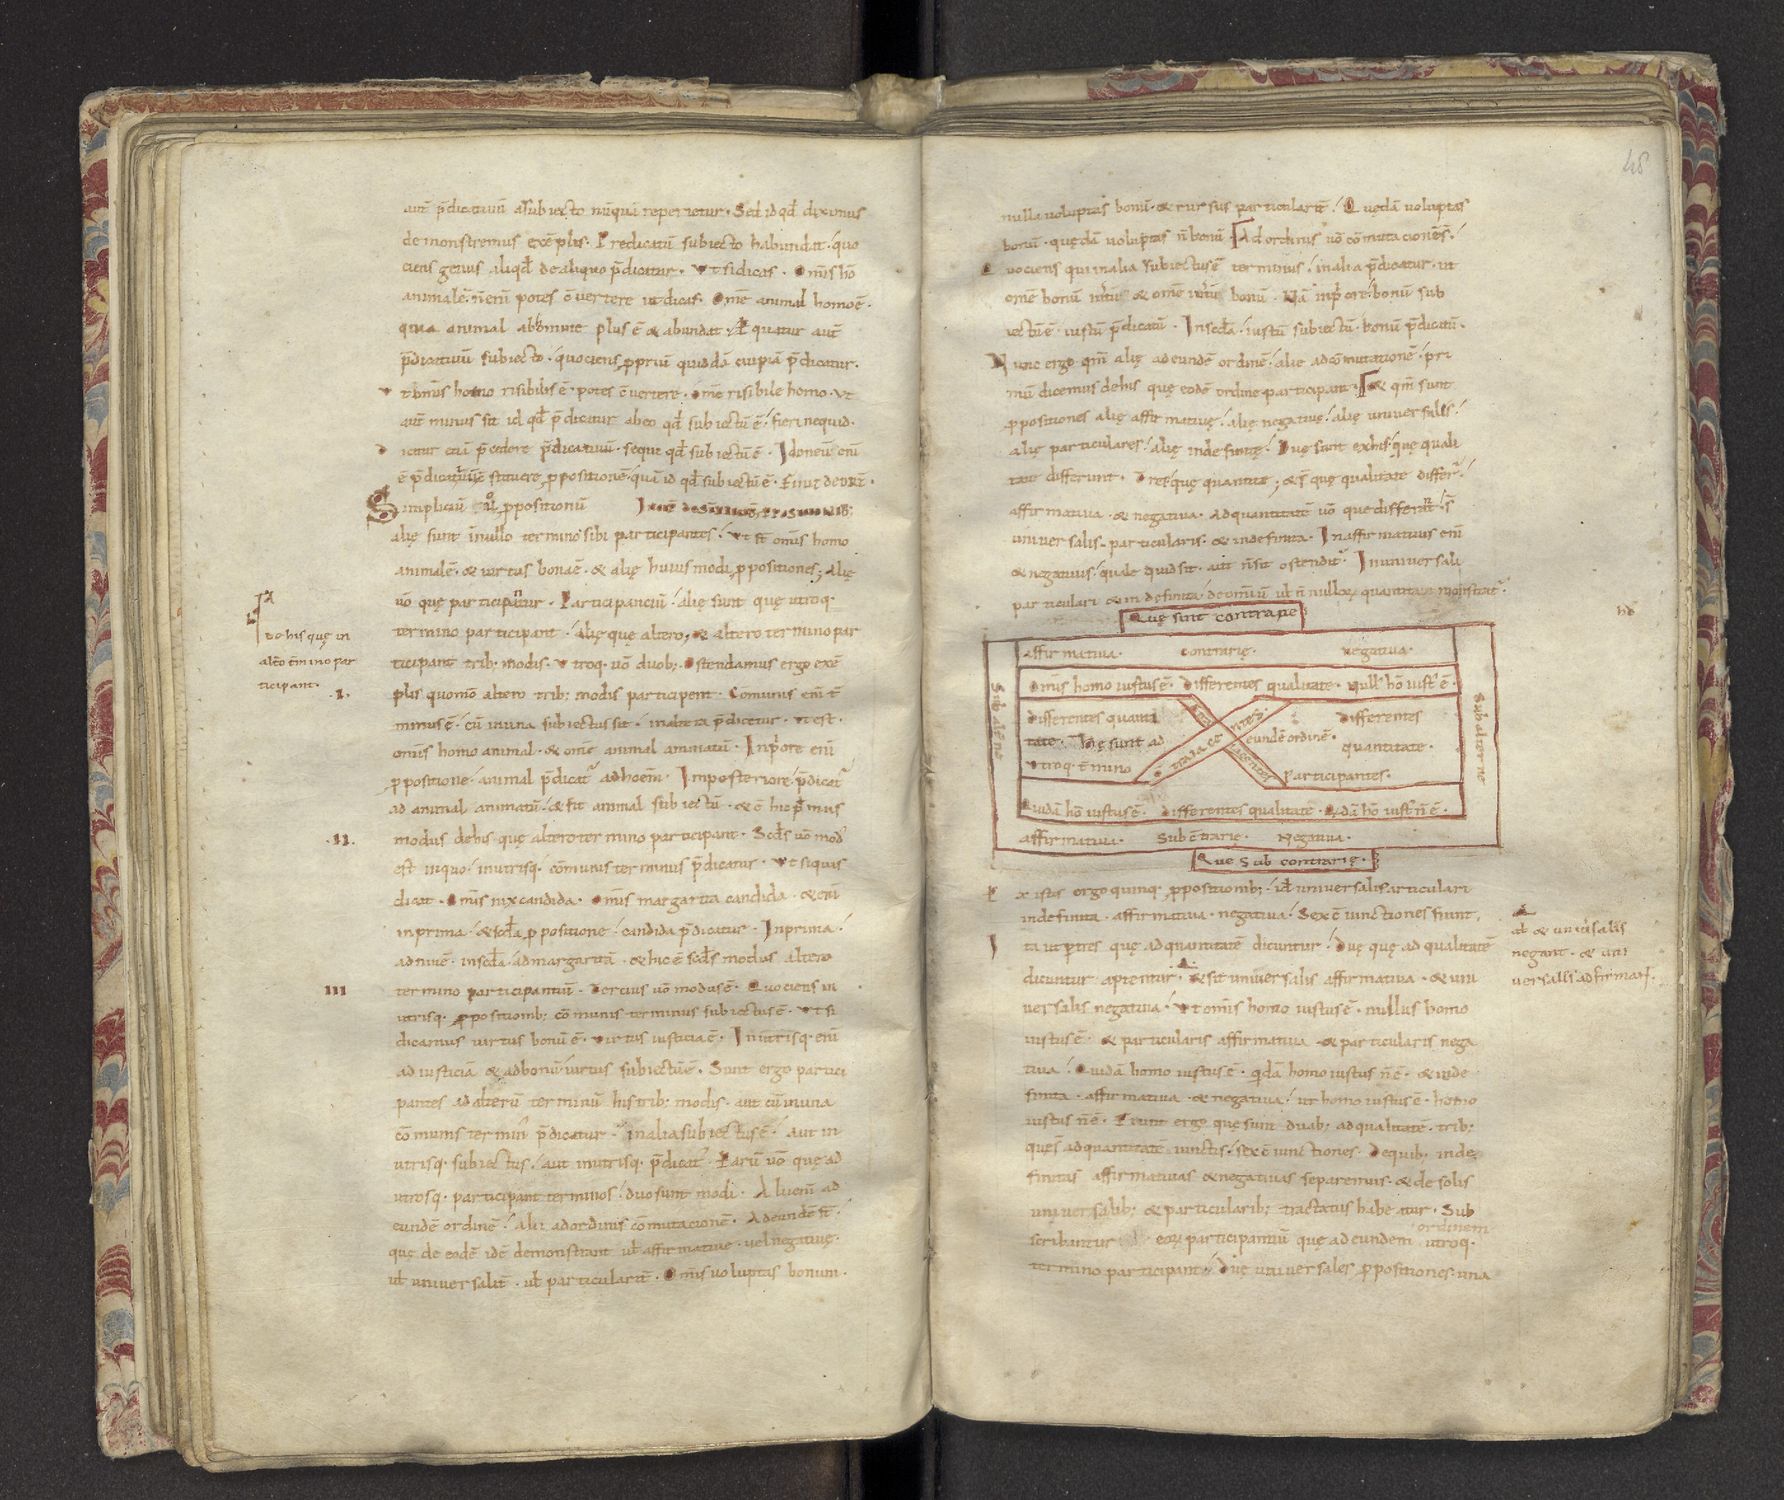 aut̄ p̄dicatiuū a subiecto nūquā reperietur. Sed id qd̄ diximus
demonstremus exēplis. Predicatū subiecto habundat. quo
ciens genus aliqd̄ de aliquo p̄dicatur. Ut si dicas. Om̄is hō
animal ē. n̄ enī potes cōuertere ut dicas. Om̄e animal homo ē.
quia animal ab homine plus ē & abundat. Equatur aut̄
p̄dicatiuū subiecto. quociens ꝓpriū quiddā cuipiā p̄dicatur.
ut om̄is homo risibilis ē. potes cōuertere. om̄e risibile homo. Ut
aut̄ minus sit id qd̄ p̄dicatur ab eo qd̄ subiectū ē. fieri nequid.
dicitur etiā p̄cedere p̄dicatiuū. sequi qd̄ subiectū ē. Idoneū enī
ē p̄dicatiuū cōstituere ꝓpositionē. quā id qd̄ subiectū ē.
Simpliciū aut̄ ꝓpositionū
alię sunt in nullo termino sibi participantes. ut st̄ om̄is homo
animal ē. & uirtus bona ē. & alię huius modi ꝓpositiones; Alię
uō quę participantur. Participanciū. alię sunt quę utroq.
termino participant. alię quę altero; & altero termino par
ticipant trib; modis. Utroq. uō duob;. Ostendamus ergo exē
plis quomō altero trib; modis participent. Cōmunis enī t̄
minus ē. cū in una subiectus sit. in altera p̄dicetur. Ut est.
om̄is homo animal. & om̄e animal animatū. In p̄ore enī
ꝓpositione. animal p̄dicat᷑ ad hoēm. In posteriore. p̄dicat᷑
ad animal animatū. & fit animal subiectū. & ē hic p̄mus
modus de his quę altero termino participant. Scd̄s uō mod᷒
est in quo. in utrisq. cōmunis terminus p̄dicatur. Ut si quis
dicat. Om̄is nix candida. Om̄is margarita candida. & enī
in prima. & scd̄a ꝓpositione. candida p̄dicatur. In prima.
ad niuē. in scd̄a. ad margaritā. & hic ē scd̄s modus altero
termino participantiū. Tercius uō modus ē. Quociens in
utrisq. ꝓpositionib; cōmunis terminus subiectus ē. Ut si
dicamus uirtus bonū ē. uirtus iusticia ē. In utrisq. enī
ad iusticiā & ad bonū. uirtus subiectū ē. Sunt ergo partici
pantes ad alterū terminū his trib; modis. aut cū in una
cōmunis termin᷒ p̄dicatur. in alia subiectus ē. aut in
utrisq. subiectus. aut in utrisq. p̄dicat᷑. Earū uō quę ad
utrosq. participant terminos. duo sunt modi. Alii enī ad
eundē ordinē. alii ad ordinis cōmutacionē. Ad eundē st̄.
quę de eodē idē demonstrant ul̄ affirmatiue. uel negatiuę.
ul̄ uniuersalit̄. ul̄ particularit̄. Om̄is uoluptas bonum.
de his quę in
alt̄o t̄mino par
ticipant.
.I.
.II.
III
48
nulla uoluptas bonū. & rursus particularit̄. Quędā uoluptas
bonū. quędā uoluptas n̄ bonū. Ad ordinis uō cōmutacionēs.
Quociens qui in alia subiectus ē terminus. in alia p̄dicatur. ut
omē bonū & omē bonū. Nā in p̄ore bonū sub
iectū ē. iustū p̄dicatū. In scd̄a. iustū subiectū. bonū p̄dicatū.
Nunc ergo qm̄ alię ad eundē ordinē. alię ad cōmutationē. pri
mū dicemus de his quę eodē ordine participant. & qm̄ sunt
ꝓpositiones alię affirmatiuę. alię negatiuę. alię uniuersalis.
alię particulares. alię indefinitę. Duę sunt ex his. quę quali
tate differunt. Tres quę quantitate; & s̄ quę qualitate differt᷑.
affirmatiua. & negatiua. ad quantitatē uō que differunt. s̄
uniuersalis. particularis. & indefinita. In affirmatiuis enī
& negatiuis. quale quid sit. aut n̄ sit ostendit᷑. In uniuersali
particulari & indefinita. de omniū ul̄ n̄ nullorū quantitate monstrat᷑.
Que sunt contrarię
affirmatiua. Contrarię. Negatiua.
Om̄is homo iustus ē. Differentes qualitate. Null᷒ hō iust᷒ ē.
Differentes quanti
tate. Hę sunt ad
utroq. t̄mino
eundē ordinē.
Differentes
quantitate.
Participantes.
Quidā hō iustus ē. Differentes qualitatē. Qdā hō iust᷒ n̄ ē.
affirmatiua. Subcōtrarię. Negatiua.
Subalterne
Subalterne
Que Sub contrarię.
Ex istis ergo quinq. ꝓpositionib;. id̄ uniuersalis articulari
indefinita. affirmatiua. negatiua. Sex cōiunctiones fiunt.
Ita ut p̄tres quę ad quantitatē dicuntur. Duę quę ad qualitatē
dicuntur aptentur. & sit uniuersalis affirmatiua. & uni
uersalis negatiua. Ut om̄is homo iustus ē. nullus homo
iustus ē. & particularis affirmatiua & particularis nega
tiua. Quidā homo iustus ē. qdā homo iustus n̄ ē. & inde
finita. affirmatiua. & negatiua. ut homo iustus ē. homo
iustus n̄ ē. Fiunt ergo quę sunt duab; ad qualitatē. trib;
quę s̄ ad quantitatē iunctis. sex cōiunctiones. De quib. inde
finitas affirmatiuas & negatiuas separemus. & de solis
uniuersalib; & particularib; tractatus habeatur. Sub
ordinem
scribantur eoꝝ participantiū quę ad eundem utroq.
termino participant. Duę uniuersales ꝓpositiones. una
ul̄ & uniūsalis
negant. & uni
uersalis adfirmat.